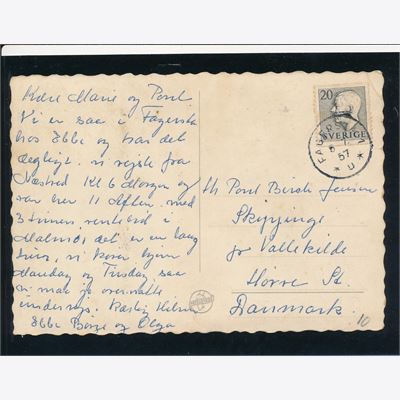 Kære Marie og Poul.
Vi er saa i Fagersta
hos Ebba og har det
dejligt. vi rejste fra
Næstved Kl 6 Morgen og
var her 11 Aften. med
3 Timers ventetid i
Malmö, det er en lang
Tur, vi kører hjem
Mandag og Tirsdag saa
vi maa jo overnatte
undervejs. Kærlig Hilsen
Ebba Børge og Olga
20
SVERIGE
FAGERSTA
57
Hr Poul Birch Jensen
Skippinge
pr Vallekilde
Hørve St.
Danmark.
10